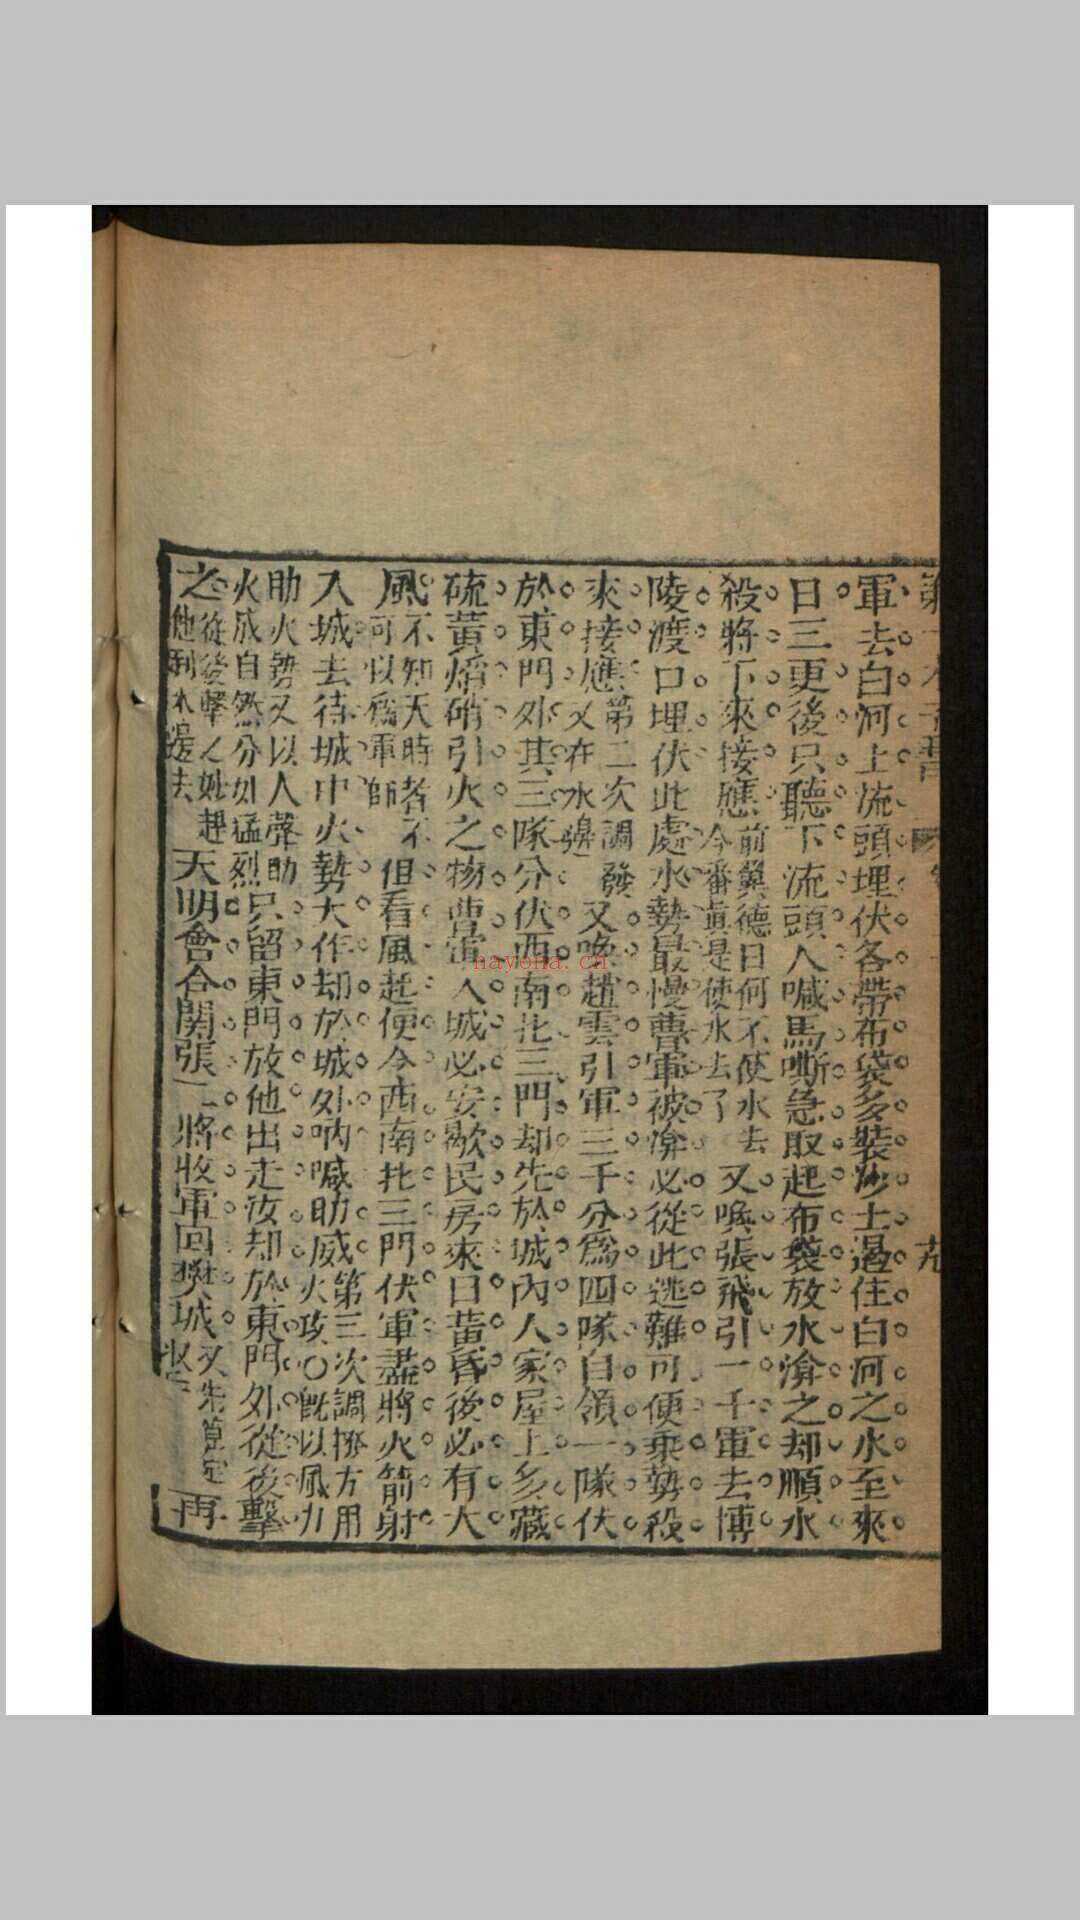 軍去白河上流頭埋伏各帶布袋多裝沙土遏住白河之水至來
日三更後只聽下流頭人喊馬嘶急取起布袋放水渰之却順水
殺將下來接應前翼德曰何不使水去今番真是使水去了又喚張飛引一千軍去博
陵渡口埋伏此處水勢最慢曹軍被渰必從此逃難可便乘勢殺
來接應第二次調發又在水邊又喚趙雲引軍三千分爲四隊自領一隊伏
於東門外其三隊分伏西南北三門却先於城內人家屋上多藏
硫黃焰硝引火之物曹軍入城必安歇民房來日黃昏後必有大
風不知天時者不可以爲軍師但看風起便令西南北三門伏軍盡將火箭射
入城去待城中火勢大作却於城外吶喊助威第三次調撥方用火攻○旣以風力
助火勢又以人聲助火威自然分外猛烈只留東門放他出走汝却於東門外從後擊
之從後擊之妙趕他到水邊去天明會合關張二將收軍回樊城又先算定再
十九
nayona.cn